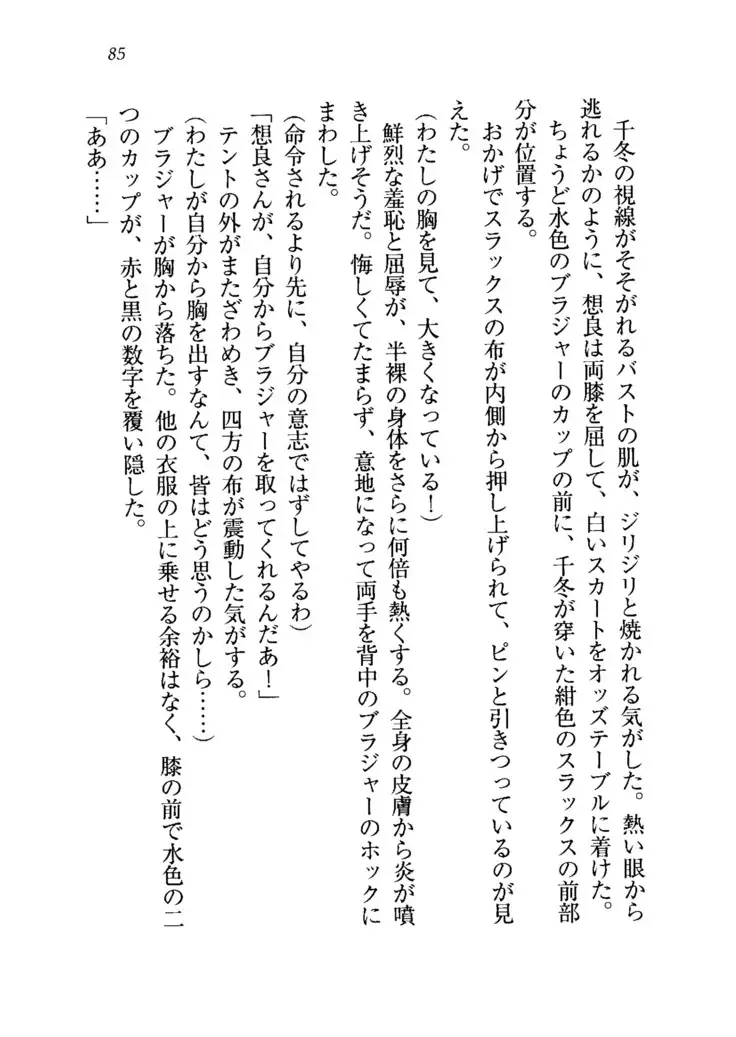 85
千冬の視線がそそがれるバストの肌が、ジリジリと焼かれる気がした。熱い眼から
逃れるかのように、想良は両膝を屈して、白いスカートをオッズテーブルに着けた。
ちょうど水色のブラジャーのカップの前に、千冬が穿いた紺色のスラックスの前部
分が位置する。
おかげでスラックスの布が内側から押し上げられて、ピンと引きつっているのが見
えた。
(わたしの胸を見て、大きくなっている!)
鮮烈な羞恥と屈辱が、半裸の身体をさらに何倍も熱くする。全身の皮膚から炎が噴
き上げそうだ。悔しくてたまらず、意地になって両手を背中のブラジャーのホックに
まわした。
(命令されるより先に、自分の意志ではずしてやるわ)
「想良さんが、自分からブラジャーを取ってくれるんだあ!」
テントの外がまたざわめき、四方の布が震動した気がする。
(わたしが自分から胸を出すなんて、皆はどう思うのかしら……)
ブラジャーが胸から落ちた。他の衣服の上に乗せる余裕はなく、膝の前で水色の二
つのカップが、赤と黒の数字を覆い隠した。
「ああ……」